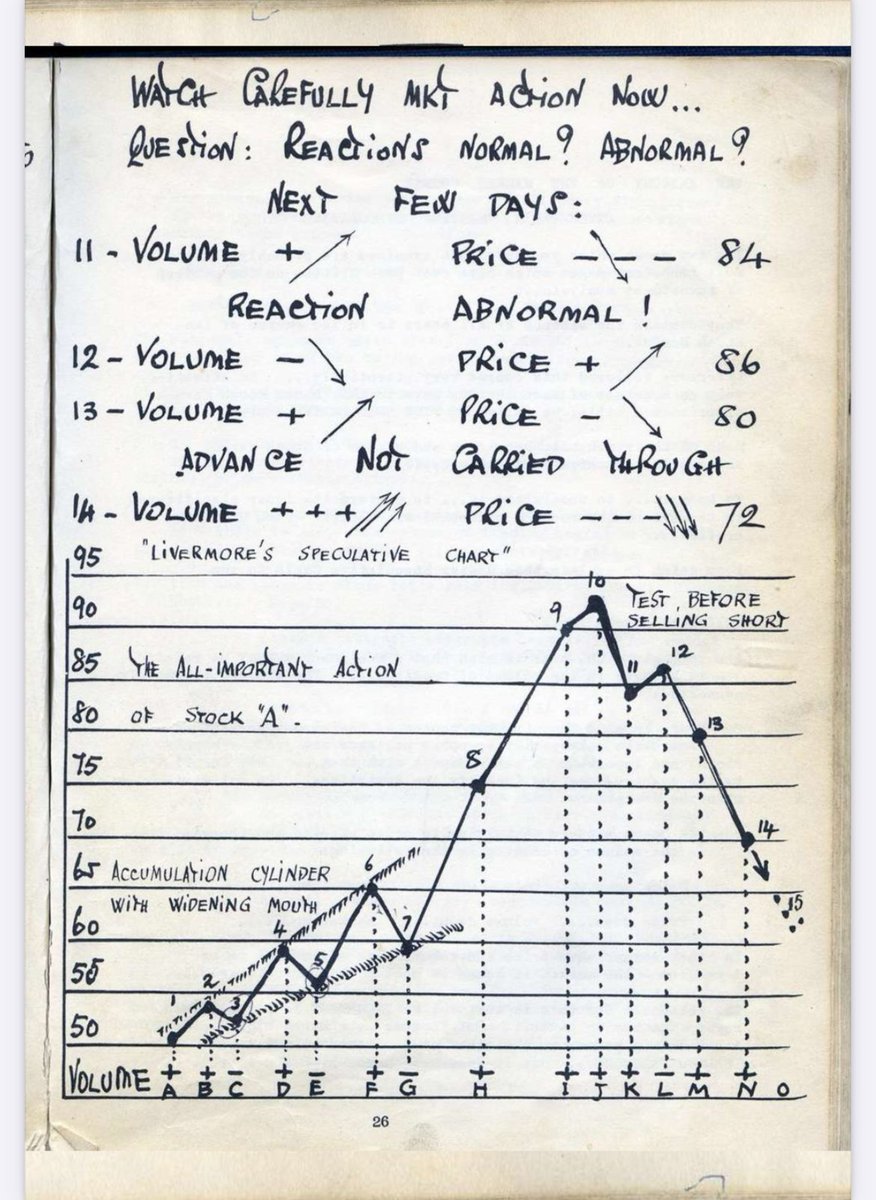 WATCH CAREFULLY MKT ACTION NOW...
QUESTION: REACTIONS NORMAL? ABNORMAL?
NEXT FEW DAYS:
11 - VOLUME + PRICE - - - 84
REACTION ABNORMAL!
12 - VOLUME - PRICE + 86
13 - VOLUME + PRICE - 80
ADVANCE NOT CARRIED THROUGH
14 - VOLUME + + + PRICE - - - 72
95 "LIVERMORE'S SPECULATIVE CHART"
10
90 9 TEST, BEFORE
SELLING SHORT
85 THE ALL-IMPORTANT ACTION 11 12
80 OF STOCK "A" - 13
75 8
70 14
65 ACCUMULATION CYLINDER 6
WITH WIDENING MOUTH 15
60 4 7
55 5
1 2 3
50
VOLUME + + - + - + - + + + + - + +
A B C D E F G H I J K L M N O
26